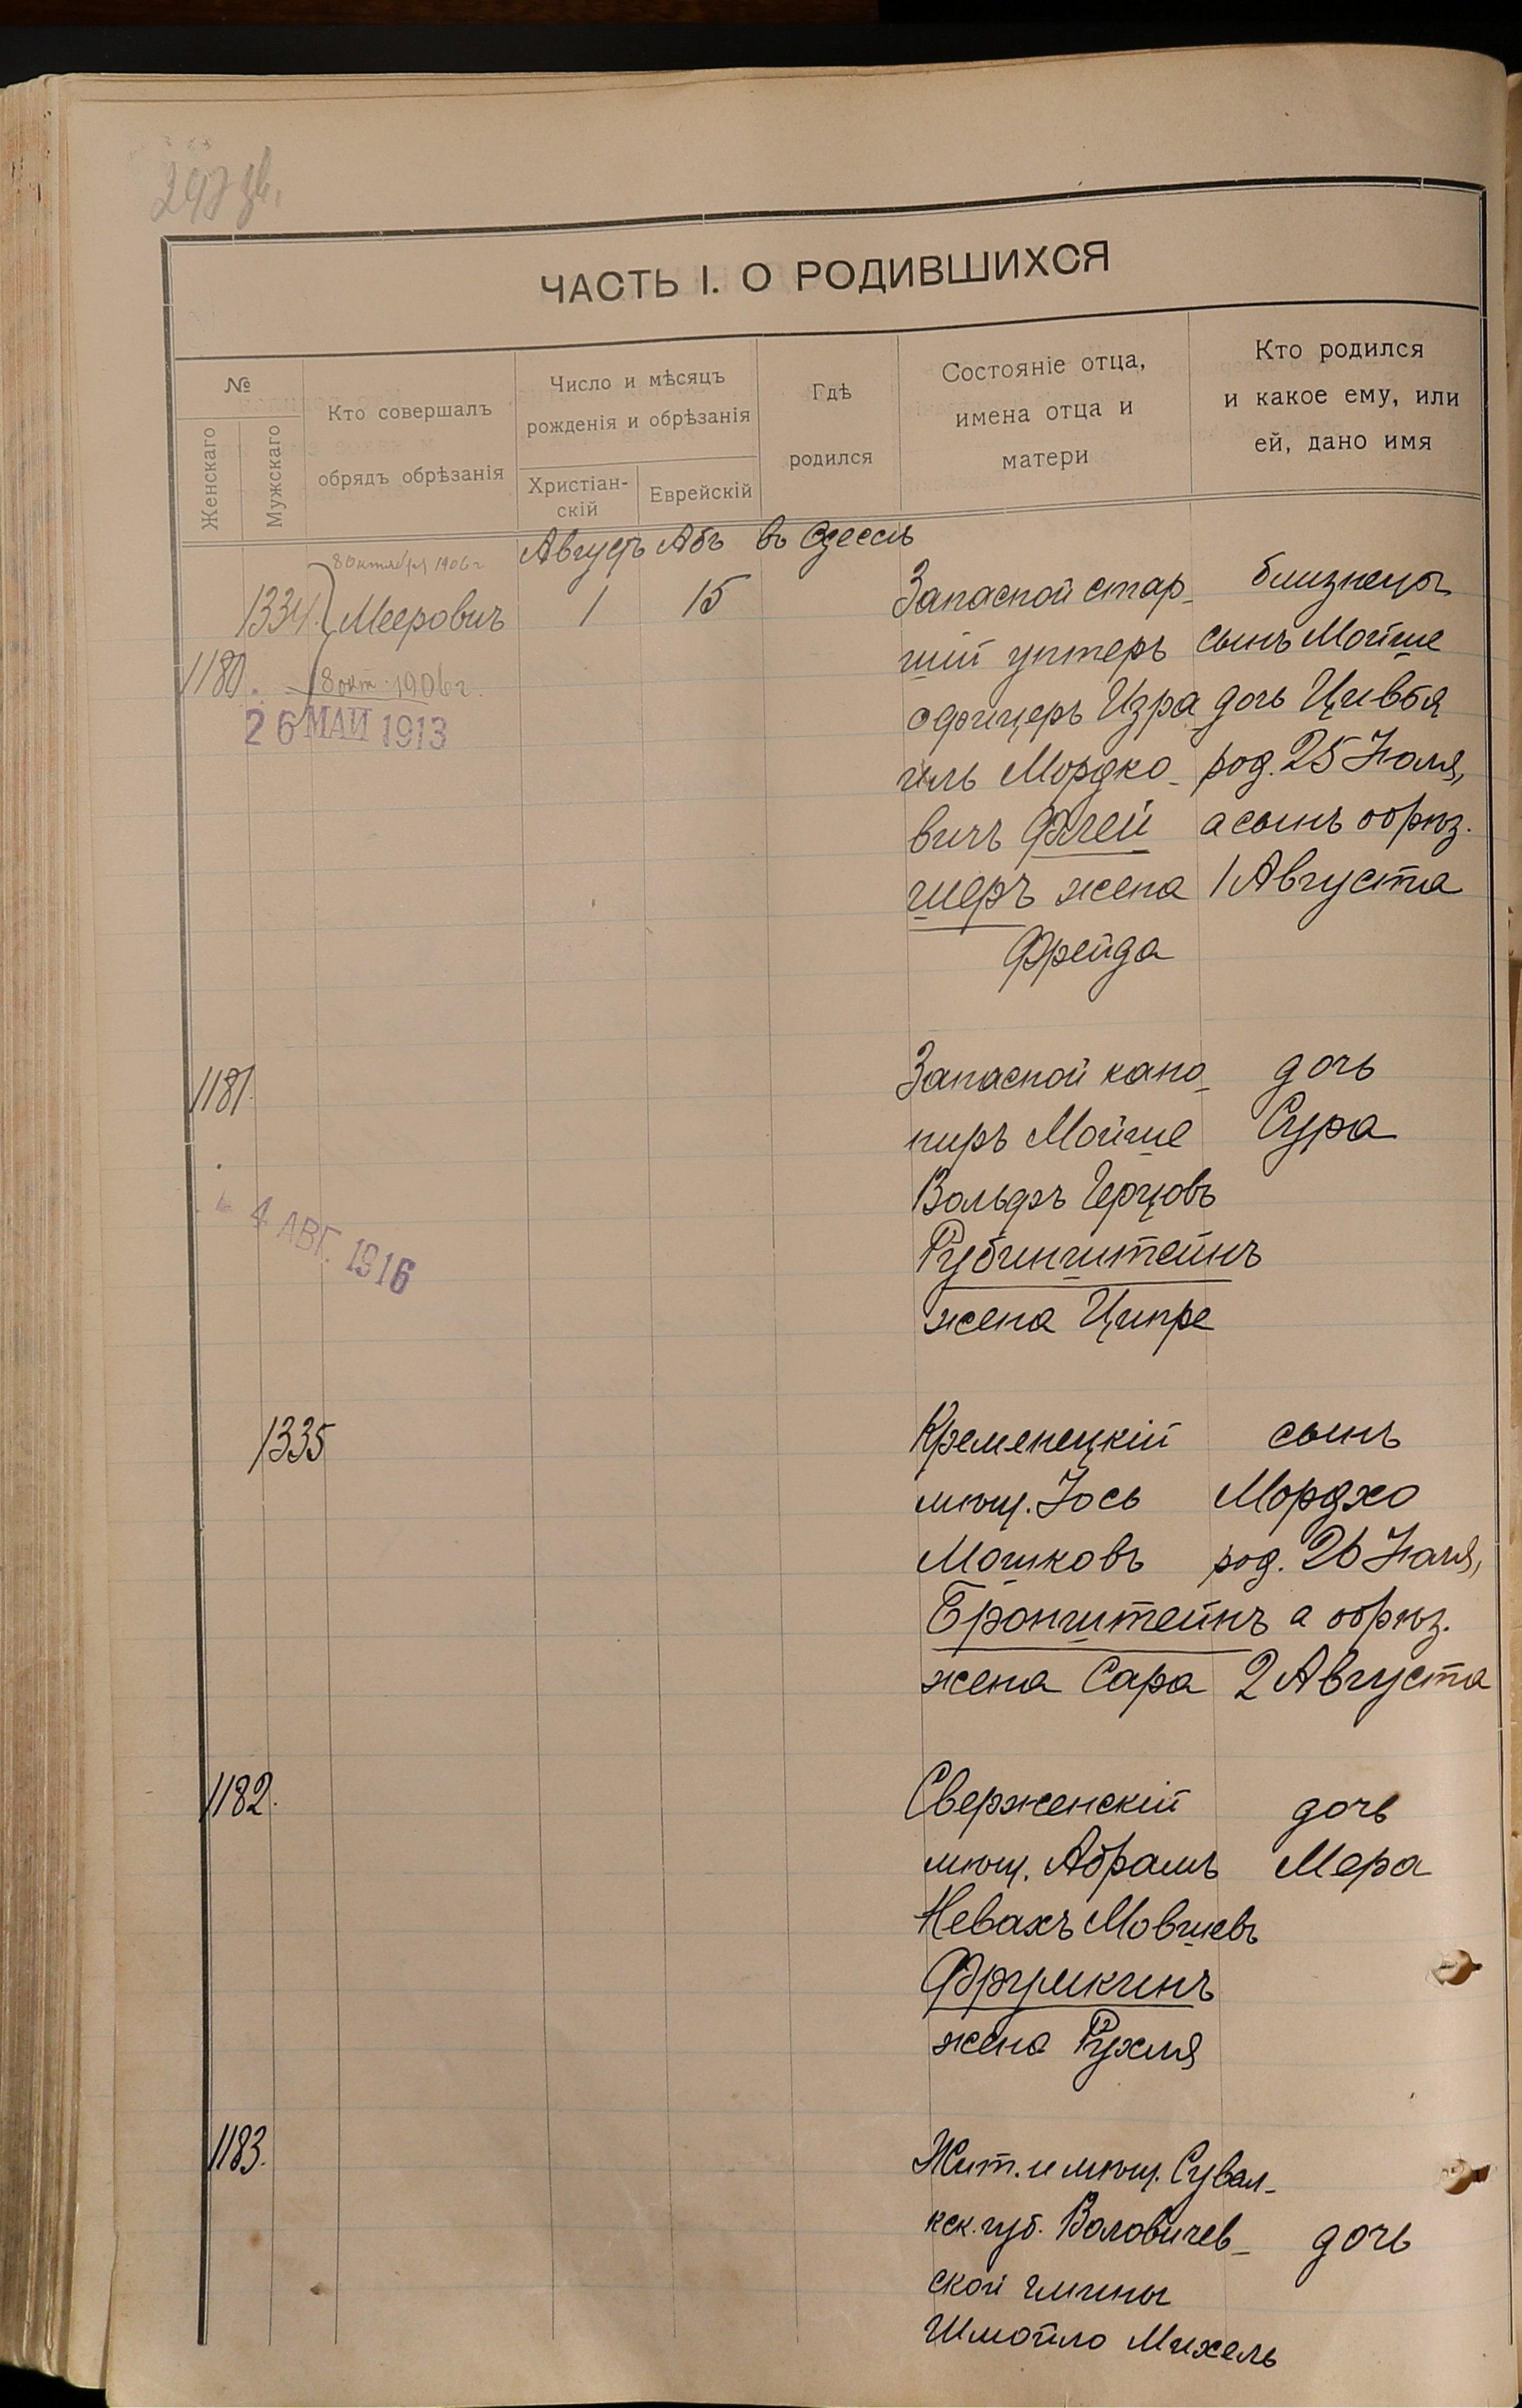 ЧАСТЬ I. О РОДИВШИХСЯ
№
Женскаго
Мужскаго
Кто совершалъ
обрядъ обрѣзанія
Число и мѣсяцъ
рожденія и обрѣзанія
Христіан-
скій
Еврейскій
Гдѣ
родился
Состояніе отца,
имена отца и
матери
Кто родился
и какое ему, или
ей, дано имя
Августъ Абъ въ Одессѣ
8 октября 1906 г
1334. Мееровичъ 1 15
1180. 8 окт. 1906 г.
26 МАЙ 1913
Запасной стар-
шій унтеръ
офицеръ Изра
иль Мордко-
вичъ Флей
шеръ жена
Фрейда
близнецы
сынъ Мойше
дочь Цивья
род. 25 Іюля,
а сынъ обрѣз.
1 Августа
1181.
4 АВГ. 1916
Запасной кано-
ниръ Мойше
Вольфъ Герцовъ
Рубинштейнъ
жена Ципре
дочь
Сура
1335
Кременецкій
мѣщ. Іось
Мошковъ
Бронштейнъ
жена Сара
сынъ
Мордхо
род. 26 Іюля,
а обрѣз.
2 Августа
1182.
Сверженскій
мѣщ. Абрамъ
Невахъ Мовшевъ
Фрумкинъ
жена Рухля
дочь
Мера
1183.
Жит. и мѣщ. Сувал-
кск. губ. Воловичев-
ской гмины
Шмойло Михель
дочь